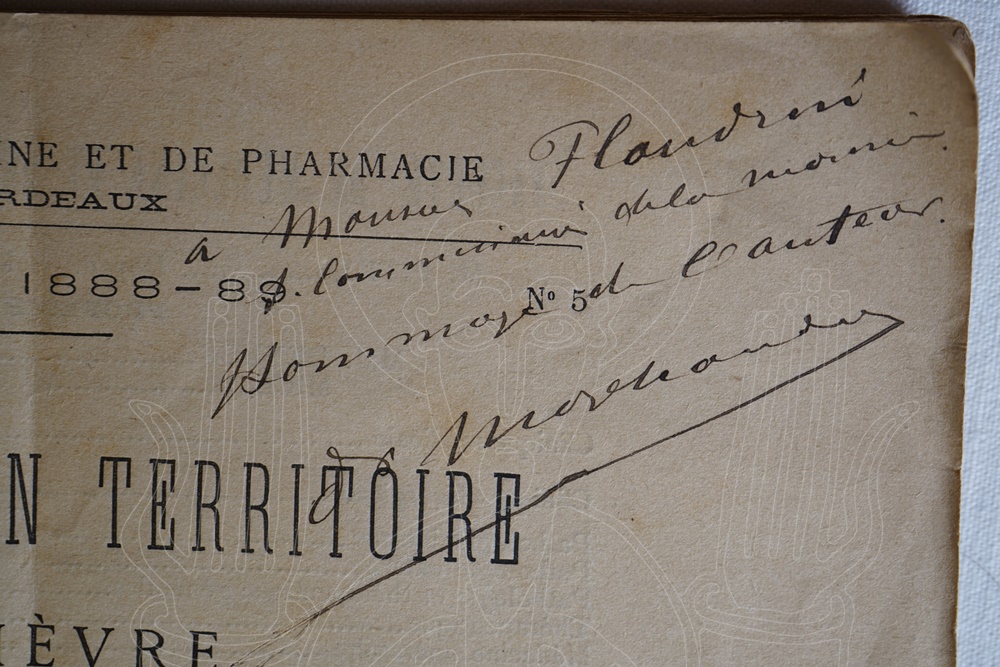 INE ET DE PHARMACIE
RDEAUX
1888-89 N° 5
a Monsieur Flandrin
S. Commissaire de la marine.
Hommage de l'auteur.
N TERRITOIRE
IÈVRE